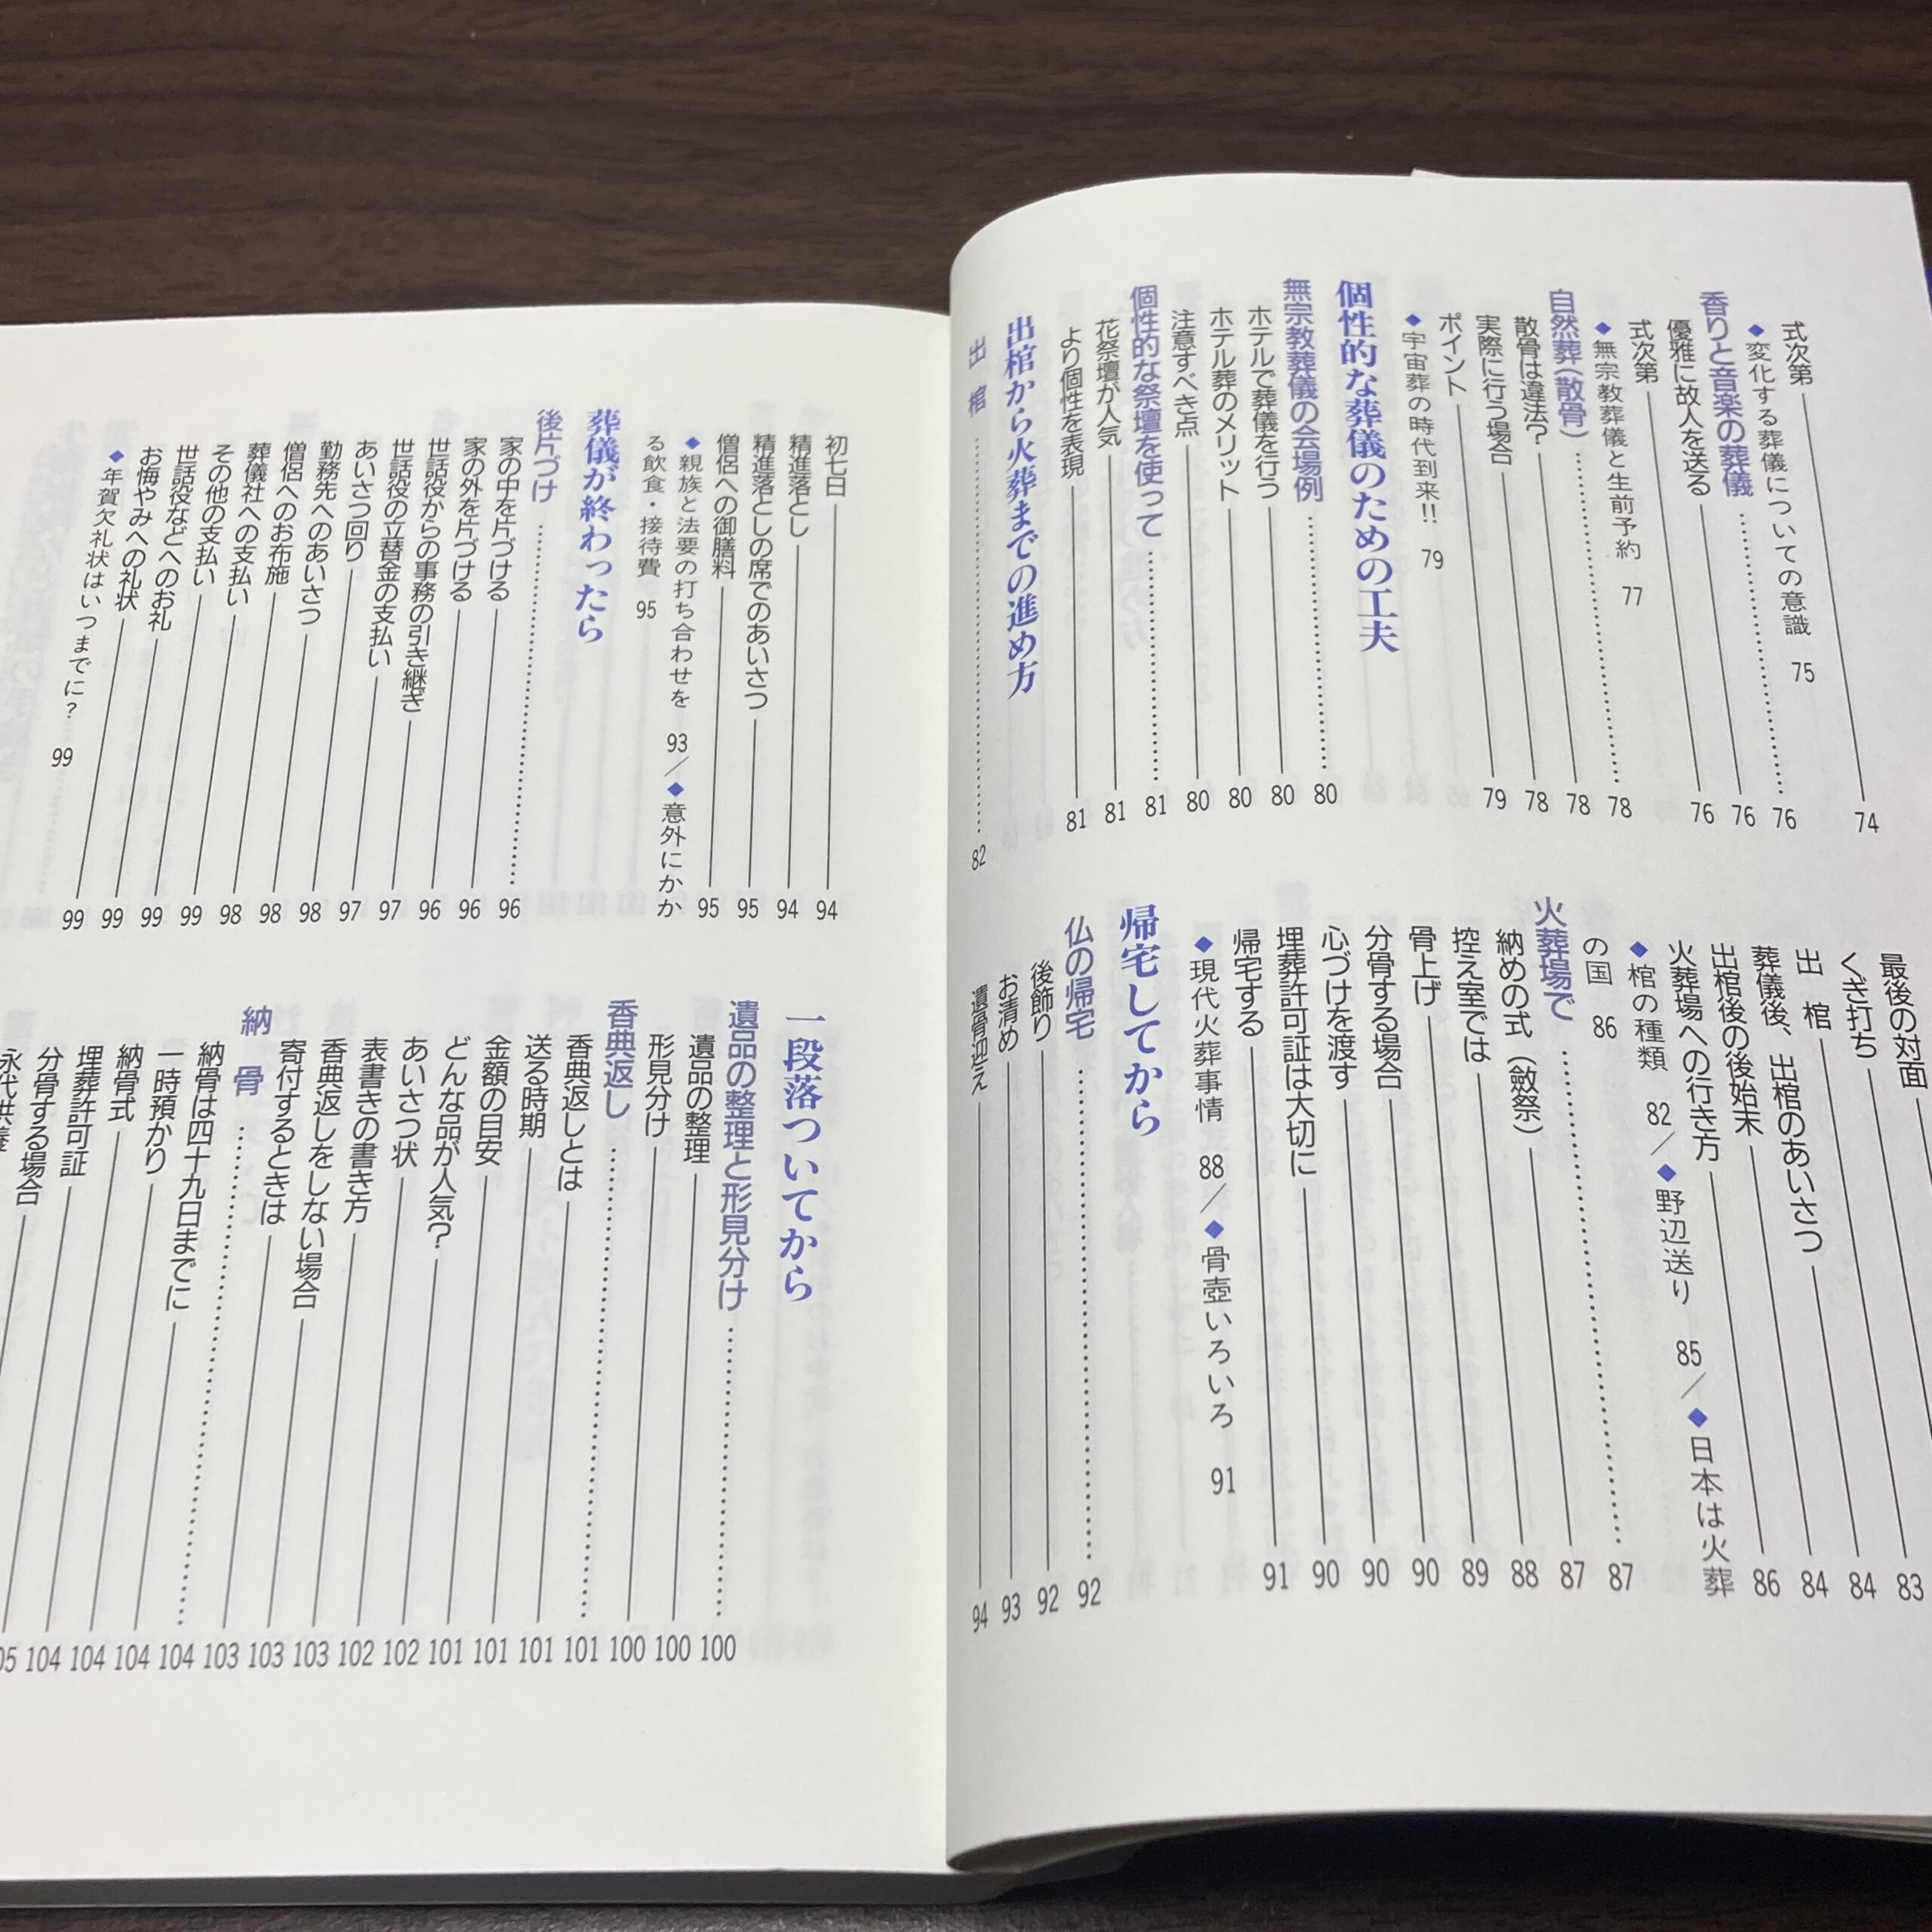 式次第 74
◆変化する葬儀についての意識 75
香りと音楽の葬儀 76
優雅に故人を送る 76
式次第 76
◆無宗教葬儀と生前予約 77
自然葬(散骨) 78
散骨は違法? 78
実際に行う場合 78
ポイント 79
◆宇宙葬の時代到来!! 79
個性的な葬儀のための工夫
無宗教葬儀の会場例 80
ホテルで葬儀を行う 80
ホテル葬のメリット 80
注意すべき点 80
個性的な祭壇を使って 81
花祭壇が人気 81
より個性を表現 81
出棺から火葬までの進め方
出棺 82
最後の対面
くぎ打ち 83
出棺 84
葬儀後、出棺のあいさつ 84
出棺後の後始末 86
火葬場への行き方
◆棺の種類 82/◆野辺送り 85/◆日本は火葬
の国 86
火葬場で 87
納めの式(斂祭) 87
控え室では 88
骨上げ 89
分骨する場合 90
心づけを渡す 90
埋葬許可証は大切に 90
帰宅する 91
◆現代火葬事情 88/◆骨壺いろいろ 91
帰宅してから
仏の帰宅 92
後飾り 92
お清め 93
遺骨迎え 94
初七日 94
精進落とし 94
精進落としの席でのあいさつ 95
僧侶への御膳料 95
◆親族と法要の打ち合わせを 93/◆意外にかか
る飲食・接待費 95
葬儀が終わったら
後片づけ 96
家の中を片づける 96
家の外を片づける 96
世話役からの事務の引き継ぎ 97
世話役の立替金の支払い 97
あいさつ回り 98
勤務先へのあいさつ 98
僧侶へのお布施 98
葬儀社への支払い 99
その他の支払い 99
世話役などへのお礼 99
お悔やみへの礼状 99
◆年賀欠礼状はいつまでに? 99
一段落ついてから
遺品の整理と形見分け 100
遺品の整理 100
形見分け 100
香典返し 101
香典返しとは 101
送る時期 101
金額の目安 101
どんな品が人気? 102
あいさつ状 102
表書きの書き方 103
香典返しをしない場合 103
寄付するときは 103
納骨 104
納骨は四十九日までに 104
一時預かり 104
納骨式 104
埋葬許可証
分骨する場合
永代供養